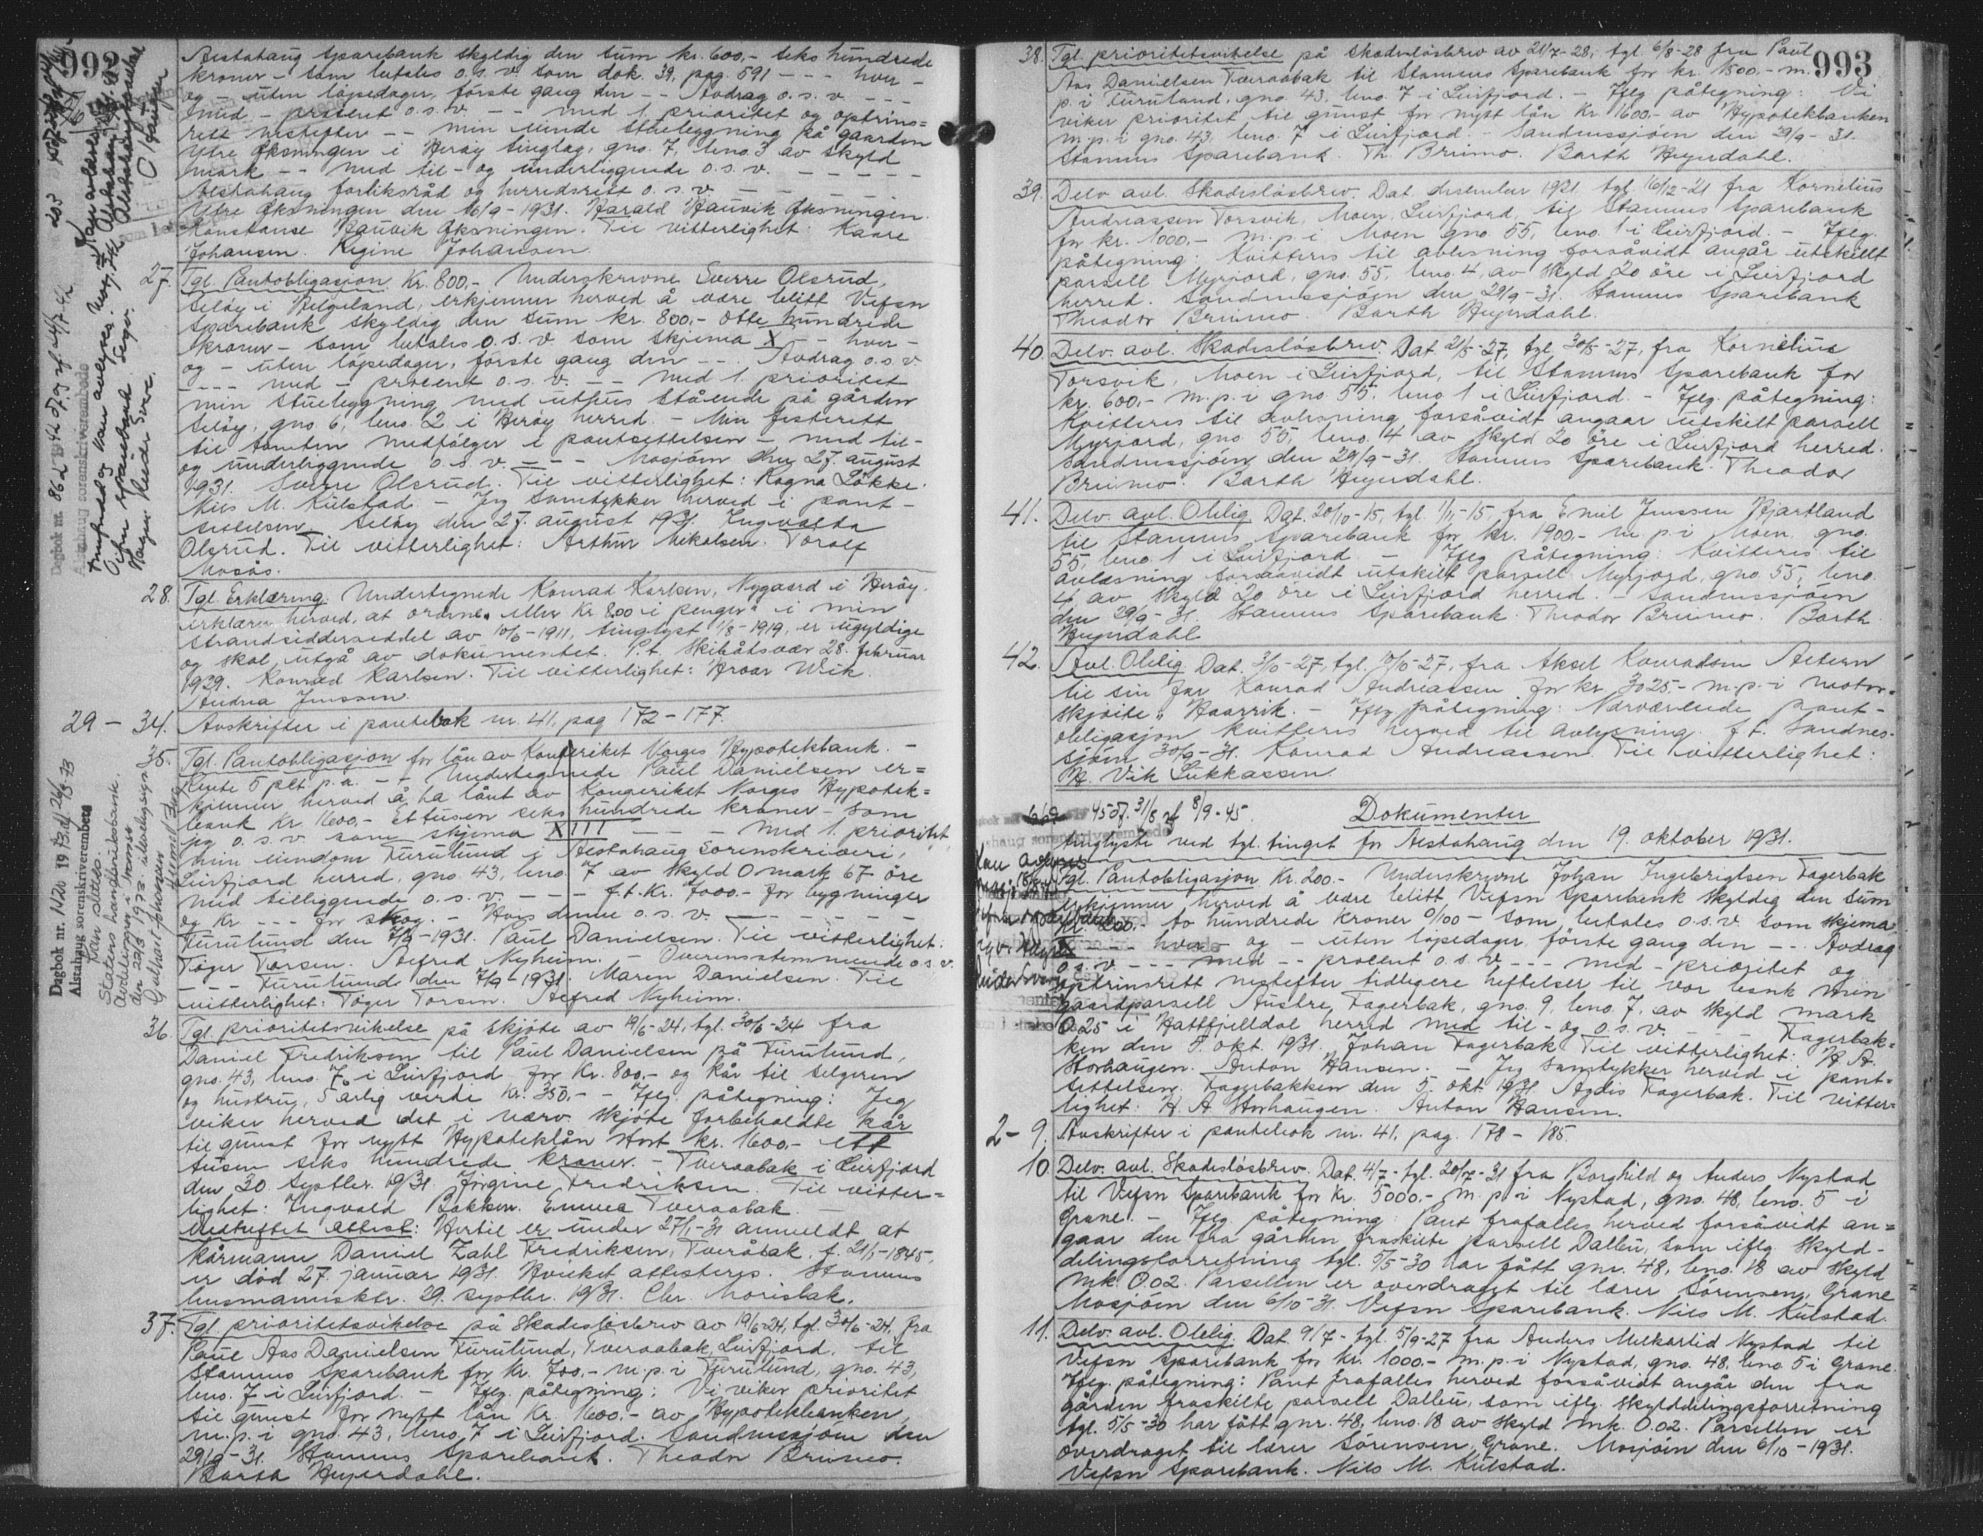 992
Alstahaug Sparebank skyldig den sum kr. 600,- seks hundrede
kroner - som betales o.s.v. som dok. 39, pag. 591 - - - hver -
og - uten löpedager, förste gang den - - Avdrag o.s.v. - - -
med - procent o.s.v. - - med 1 prioritet og optrins=
rett nestefter - - min eiende stuebygning på gaarden
Ytre Öksningen i Heröy tinglag, gno. 7, bno. 3 av skyld
mark - - med til- og underliggende o.s.v. - - - - -
Alstahaug forliksråd og herredsrett o.s.v. - -
Ytre Öksningen den 16/9-1931. Harald Hauvik Öksningen.
Konstanse Hauvik Öksningen. Til vitterlighet: Kaare
Johansen. Regine Johansen
27. Tgl. Pantobligasjon. Kr. 800,- Underskrevne Sverre Olsrud,
Seløy i Helgeland, erkjenner herved å være blitt Vefsn
Sparebank skyldig den sum kr. 800,- Otte hundrede
kroner - som betales o.s.v. som skjema X - - hver -
og - uten løpedager, förste gang den - - Avdrag o.s.v.
- - - - med - procent o.s.v. - - med 1. prioritet
min stuebygning med uthus stående på gården
Seløy, gno. 6, bno. 2 i Herøy herred. - Min festerett
til tomten medfølger i pantsettelsen - med til-
og underliggende o.s.v. - - - Mosjøen den 27. august
1931. Sverre Olsrud. Til vitterlighet: Ragna Løkke.
Nils M. Kulstad. - Jeg samtykker herved i pant-
settelsen. Seløy den 27. august 1931. Ingvalda
Olsrud. Til vitterlighet: Arthur Mekalsen. Torolf
Mosås.
28. Tgl. Erklæring. Undertegnede Konrad Karlsen, Nygaard i Herøy,
erklærer herved, at ordene „eller Kr. 800 i penger" i min
strandsidderseddel av 10/6-1911, tinglyst 1/8-1919, er ugyldige
og skal utgå av dokumentet. P.t. Skibåtsvær 28. februar
1929. Konrad Karlsen. Til vitterlighet: Hroar Wik.
Andrea Jenssen.
29 - 34. Avskrifter i pantebok nr. 41, pag 172-177.
35. Tgl. Pantobligasjon for lån av Kongeriket Norges Hypotekbank. -
Rente 5 pct. p.a. - - Undertegnede Paul Danielsen er=
kjenner herved å ha lånt av Kongeriket Norges Hypotek=
bank kr. 1600,- ettusen seks hundrede kroner - som
jeg o.s.v. som skjema XIII - - - med 1. prioritet
min eiendom Furulund i Alstahaug sorenskriveri,
Leirfjord herred, gno. 43, bno. 7 av skyld 0 mark 67 øre
med tilliggende o.s.v. - - - f.t. Kr. 7000.- for bygninger
og kr. - - for skog. - Hvis denne o.s.v. - - - -
Furulund den 7/9-1931. Paul Danielsen. Til vitterlighet:
Tøger Torsen. Alfred Nyheim. - Overensstemmende o.s.v.
- - - Furulund den 7/9-1931. Maren Danielsen. Til
vitterlighet: Tøger Torsen. Alfred Nyheim.
36. Tgl. prioritetsvikelse på skjøte av 19/6-24, tgl. 30/6-24 fra
Daniel Fredriksen til Paul Danielsen på Furulund,
gno. 43, bno. 7 i Leirfjord for kr. 800,- og kår til selgeren
og hustru, 5 årlig verdi kr. 350,- - Iflg. påtegning: Jeg
viker herved det i nærv. skjøte forbeholdte kår
til gunst for nytt Hypoteklån stort kr. 1600,- ett
tusen seks hundrede kroner. - Tveraabak i Leirfjord
den 20 septbr. 1931. Jørgine Fredriksen. Til vitter=
lighet: Ingvald Bakken. Emma Tveraabak. -
Vedheftet attest: Hertil er under 27/1-31 anmeldt at
kårmann Daniel Zahl Fredriksen, Tveråbak, f. 21/5-1845,
er død 27. januar 1931. Hvilket attesteres. Stamnes
lensmannsktr. 29. septbr. 1931. Chr. Morisbak.
37. Tgl. prioritetsvikelse på Skadesløsbrev av 19/6-24, tgl. 30/6-24, fra
Paul Aas Danielsen Furulund, Tveraabak, Leirfjord, til
Stamnes Sparebank for kr. 700,- m.p. i Furulund, gno. 43,
bno. 7 i Leirfjord. - Iflg. påtegning: Vi viker prioritet
til gunst for nytt lån kr. 1600,- av Hypotekbanken
m.p. i gno. 43, bno. 7 i Leirfjord. Sandnessjøen den
29/9-31. Stamnes Sparebank. Theodor Brunvo.
Barth Heyerdahl.
Dagbok nr. 862 1942
Alstahaug sorenskriverembede
Dagbok nr. 1020 1973
Alstahaug sorenskriverembede
Kan slettes.
Statens handverksbank
993
38. Tgl. prioritetsvikelse på skadesløsbrev av 21/7-28, tgl. 6/8-28 fra Paul
Aas Danielsen Tveraabak til Stamnes Sparebank for kr. 1500.- m.
p. i Furulund, gno. 43, bno. 7 i Leirfjord. - Iflg. påtegning: Vi
viker prioritet til gunst for nytt lån kr. 1600.- av Hypotekbanken
m.p. i gno. 43 bno. 7 i Leirfjord. - Sandnessjøen den 29/9-31.
Stamnes Sparebank. Th. Brunvo. Barth Heyerdahl.
39. Delv. avl. Skadesløsbrev. Dat. desember 1921, tgl. 16/12-21 fra Kornelius
Andreassen Torsvik, Moen, Leirfjord, til Stamnes Sparebank
for kr. 1000,- m.p. i Moen gno 55, bno. 1 i Leirfjord. - Iflg.
påtegning: Kvitteres til avlesning forsåvidt angår utskilt
parsell Myrjord, gno. 55 bno. 4, av skyld 20 öre i Leirfjord
herred. Sandnessjøen den 29/9-31. Stamnes Sparebank
Theodor Brunvo. Barth Heyerdahl.
40. Delv. avl. Skadesløsbrev. Dat 21/5-27, tgl. 30/5-27, fra Kornelius
Torsvik, Moen i Leirfjord, til Stamnes Sparebank for
kr. 600,- m.p. i gno. 55, bno. 1 i Leirfjord. - Iflg. påtegning:
Kvitteres til avlesning forsåvidt angaar utskilt parsell
Myrjord, gno. 55, bno. 4 av skyld 20 øre i Leirfjord herred.
Sandnessjøen den 29/9-31. Stamnes Sparebank. Theodor
Brunvo. Barth Heyerdahl.
41. Delv. avl. Oblig. Dat. 20/10-15, tgl. 1/11-15, fra Emil Jenssen Hjartland
til Stamnes Sparebank for kr. 1900.- m.p. i Moen gno.
55, bno. 1 i Leirfjord. - Iflg. påtegning: Kvitteres til
avlesning forsaavidt utskilt parsell Myrjord, gno 55, bno.
4 av skyld 20 øre i Leirfjord herred. - Sandnessjøen
den 29/9-31. Stamnes Sparebank. Theodor Brunvo. Barth
Heyerdahl
42. Avl. Oblig. Dat. 3/10-27, tgl. 10/10-27, fra Aksel Konradsen Aetern
til sin far Konrad Andreassen for kr. 3025,- m.p. i motor-
skjøite „Haarrik. - Iflg. påtegning: Nærværende pant-
obligasjon kvitteres herved til avlysning. f.t. Sandnes-
sjøen 30/9-31. Konrad Andreassen. Til vitterlighet:
H. Vik Lukkassen
Dokumenter
tinglyste ved tgl. tinget for Alstahaug den 19. oktober 1931.
Tgl. Pantobligasjon Kr. 200.- Underskrevne Johan Ingebrigtsen Fagerbak
erkjenner herved å være blitt Vefsn Sparebank skyldig den sum
kr. 200,- to hundrede kroner 0/100 - som betales o.s.v. som skjema
X - - hver - og - uten løpedager, förste gang den - - Avdrag
o.s.v. - - - med - - procent o.s.v. - - - med - prioritet og
optrinsrett nestefter tidligere heftelser til vor bank min
gaardparsell Austre Fagerbak, gno. 9, bno. 7, av skyld mark
0.25 i Hattfjelldal herred med til- og o.s.v. - - Fagerbak=
ken den 5. okt. 1931. Johan Fagerbak. Til vitterlighet: H A
Storhaugen. Anton Hansen. - Jeg samtykker herved i pant-
settelsen. Fagerbakken den 5. okt 1931. Agdis Fagerbak. Til vitter=
lighet: H. A Storhaugen. Anton Hansen.
2 - 9. Avskrifter i pantebok nr. 41, pag. 178 - 185.
10. Delv. avl. Skadesløsbrev. Dat. 4/7- tgl. 20/7-31 fra Borghild og Anders Nystad
til Vefsn Sparebank for kr. 5000.- m.p. i Nystad, gno. 48, bno. 5 i
Grane. - Iflg. påtegning: Pant frafalles herved forsåvidt an=
gaar den fra gården fraskilte parsell Dalbu, som iflg. skyld-
delingsforretning tgl. 5/5-30 har fått gnr. 48, bno. 18 av skyld
mk. 0.02. Parsellen er overdraget til lærer Sörensen, Grane
Mosjöen den 6/10-31. Vefsn Sparebank. Nils M. Kulstad.
11. Delv. avl. Oblig. Dat. 9/7- tgl. 5/9-27 fra Anders Melkartid Nystad til
Vefsn Sparebank for kr. 1000.- m.p. i Nystad, gno. 48, bno. 5 i Grane
Iflg. påtegning: Pant frafalles herved forsåvidt angår den fra
gården fraskilte parsell Dalbu, som iflg. skylddelingsforretning
tgl. 5/5-30 har fått gnr. 48, bno. 18 av skyld mk. 0.02. Parsellen er
overdraget til lærer Sørensen, Grane. Mosjøen den 6/10-1931.
Vefsn Sparebank. Nils M. Kulstad.